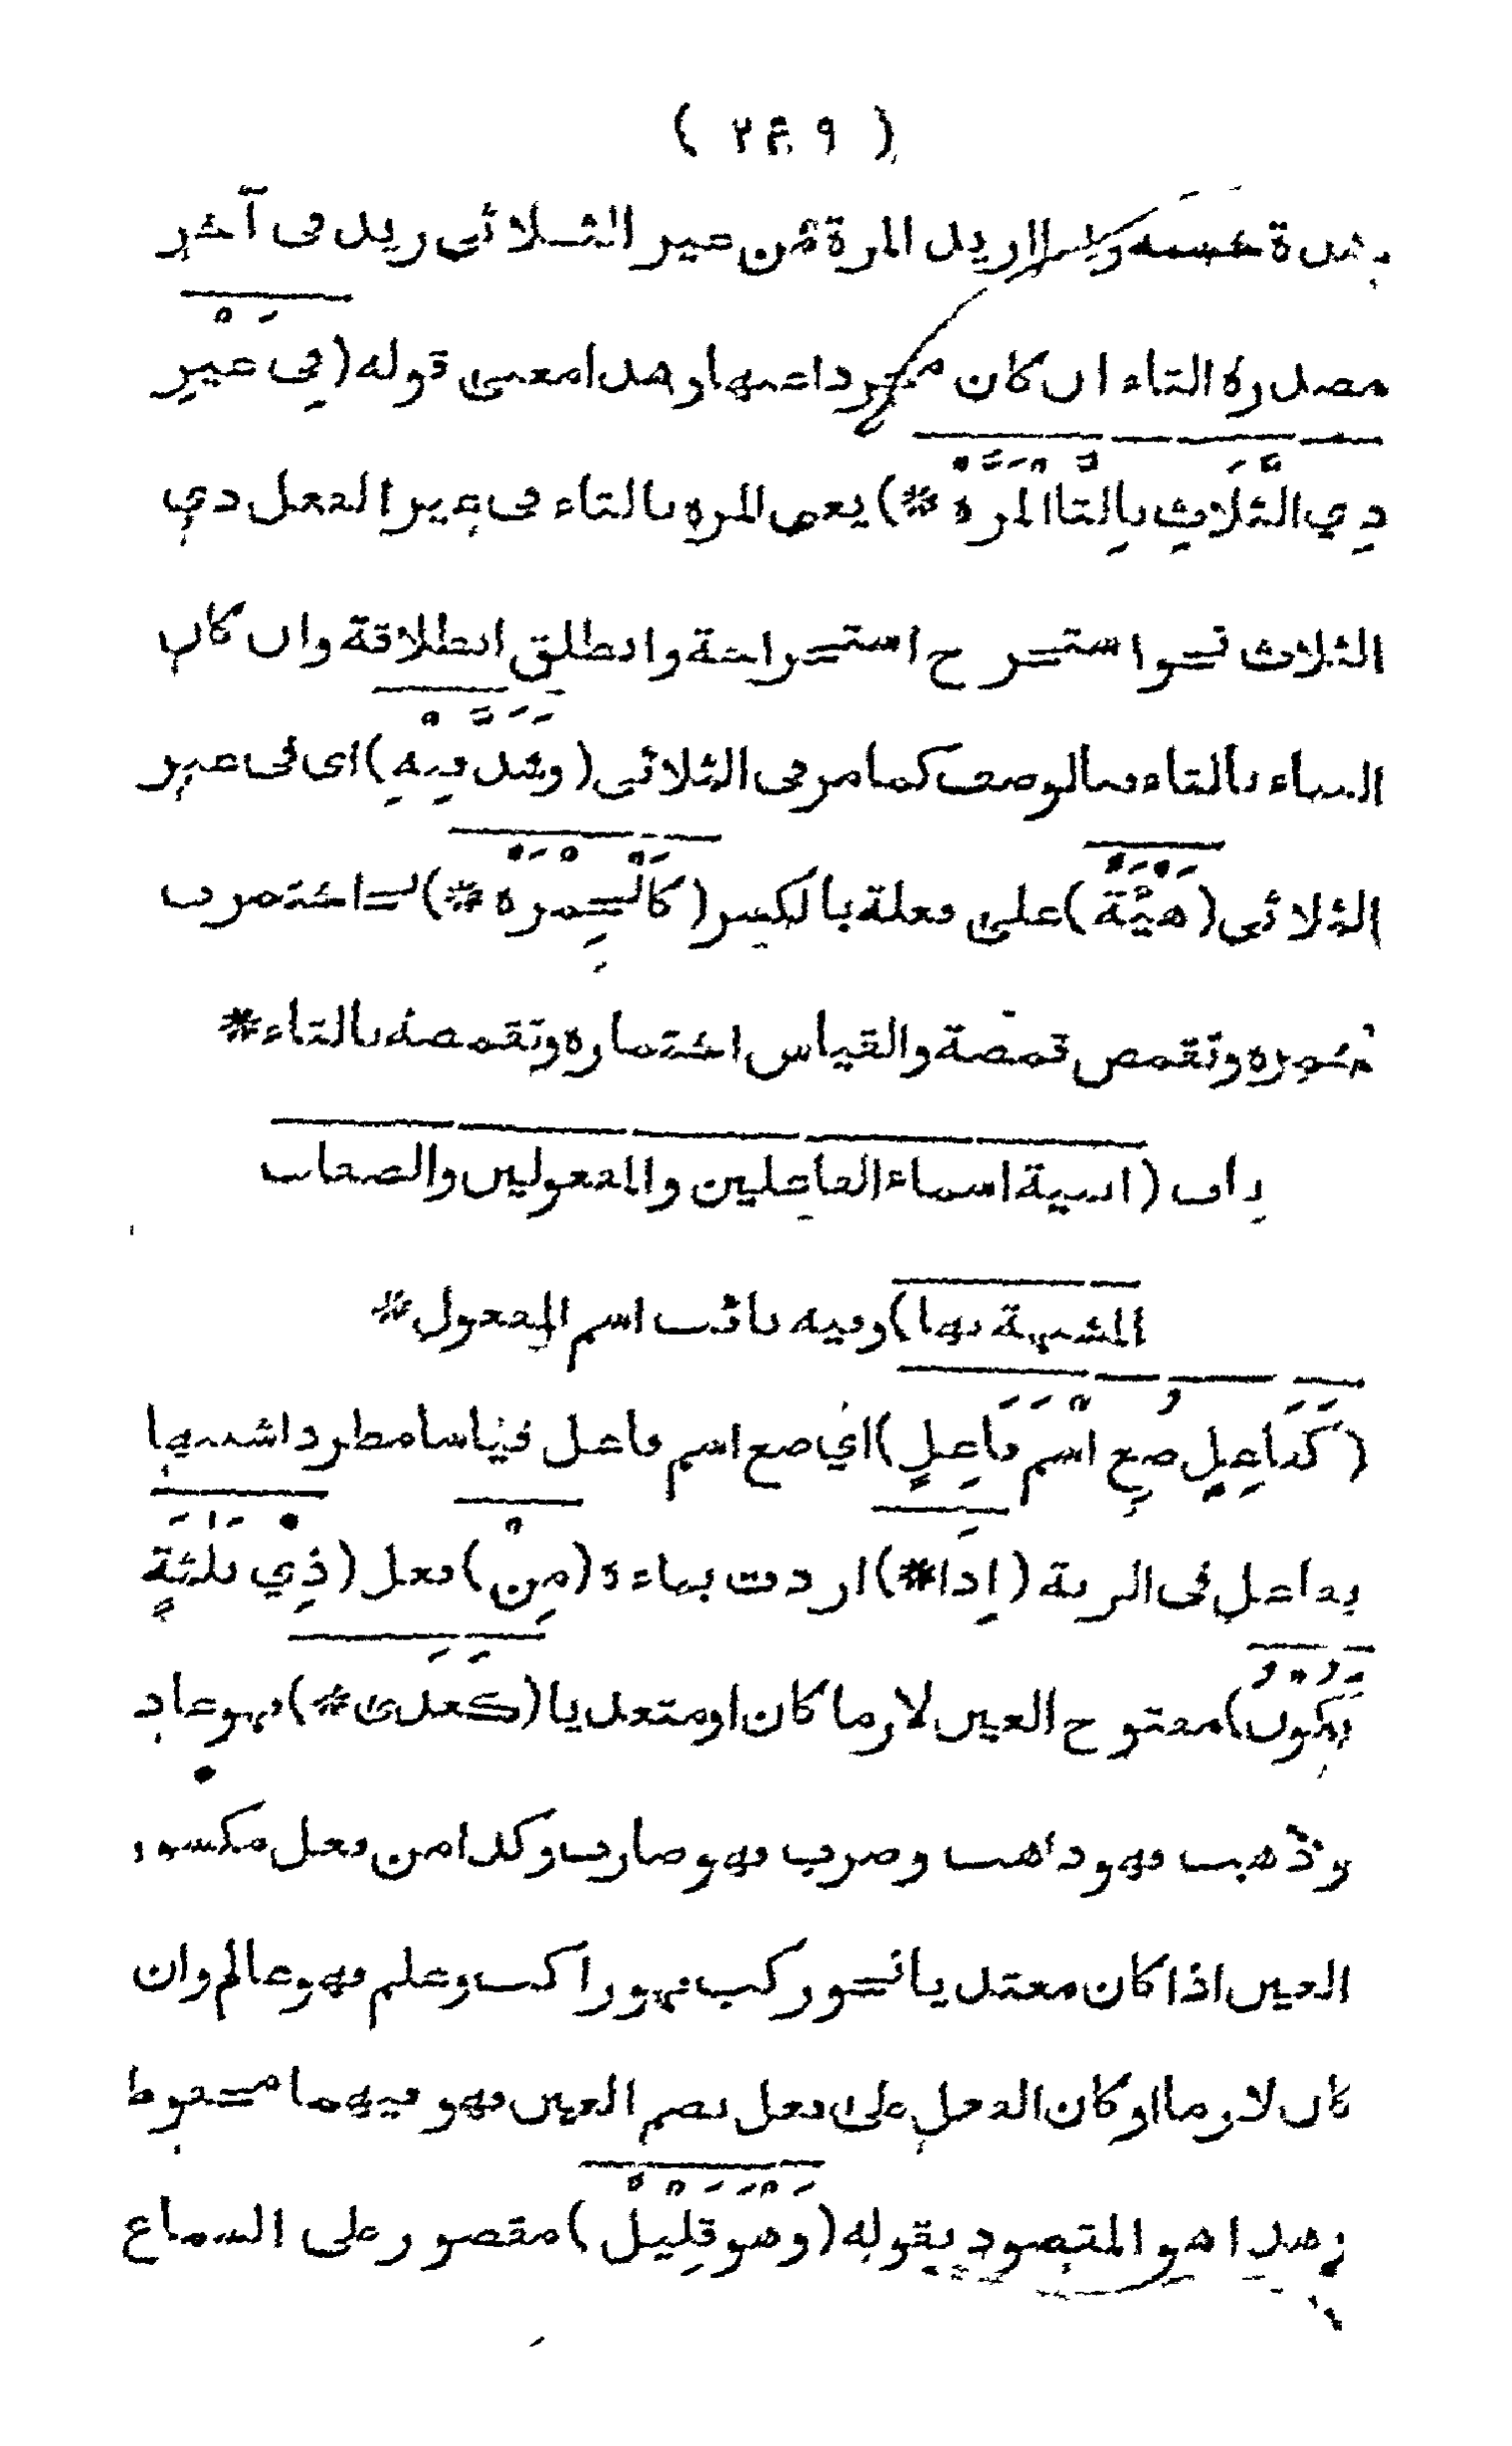 ( ٢٤٩ )
نشدة حسنه واذا اريد المرة من غير الثلاثي زيد في آخر
مصدره التاء ان كان مجردا عنها وهذا معنى قوله (فِي غَيْرِ
ذِي الثَّلاثِ بِالتَّا المَرَّه *) يعني المره بالتاء في غير الفعل ذي
الثلاث نحو استخرج استخراجة وانطلق انطلاقة وان كان
البناء بالتاء فبالوصف كما مر في الثلاثي (وَشَذَّ فِيْهِ) اي في غير
الثلاثي (هَيْئَةٌ) على فعلة بالكسر (كَالْخِمْرَه *) نحو اختمرت
خمره وتقمص قمصة والقياس اختماره وتقمصه بالتاء *
باب (ابنية اسماء الفاعلين والمفعولين والصفات
المشبهة بها) وفيه نائب اسم المفعول *
(كَفَاعِلٍ صُغِ اسْمَ فَاعِلٍ) اي صغ اسم فاعل قياسا مطردا شبيها
بفاعل في الزنة (إِذَا *) اردت بناءه (مِنْ) فعل (ذِي ثَلٰثَةٍ
يَكُوْنُ) مفتوح العين لازما كان او متعديا (كَغَذَى *) فهو غاذ
وذهب فهو ذاهب وضرب فهو ضارب وكذا من فعل مكسور
العين اذا كان معتديا نحو ركب فهو راكب وعلم فهو عالم وان
كان لازما او كان الفعل على فعل بضم العين فهو فيهما محفوظ
وهذا هو المقصود بقوله (وَهْوَ قَلِيْلٌ) مقصور على السماع